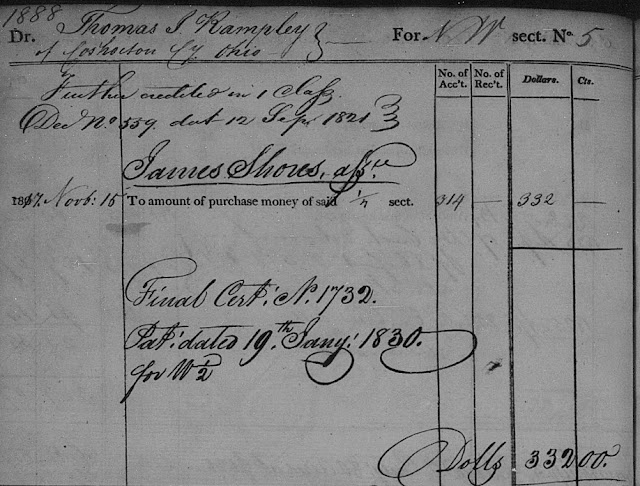 1888
Dr. Thomas J. Rampley For N W sect. No. 5
of Coshocton Cy Ohio
No. of Acc't. No. of Rec't. Dollars. Cts.
Further credited in 1 Class
Dec No. 559. dat 12 Sepr. 1821
James Shores, assee.
1817. Novb: 15 To amount of purchase money of said 1/4 sect. 314 — 332 —
Final Cert: No. 1732.
Pat: dated 19th Jany: 1830.
for W 1/2
Dolls 332 00.